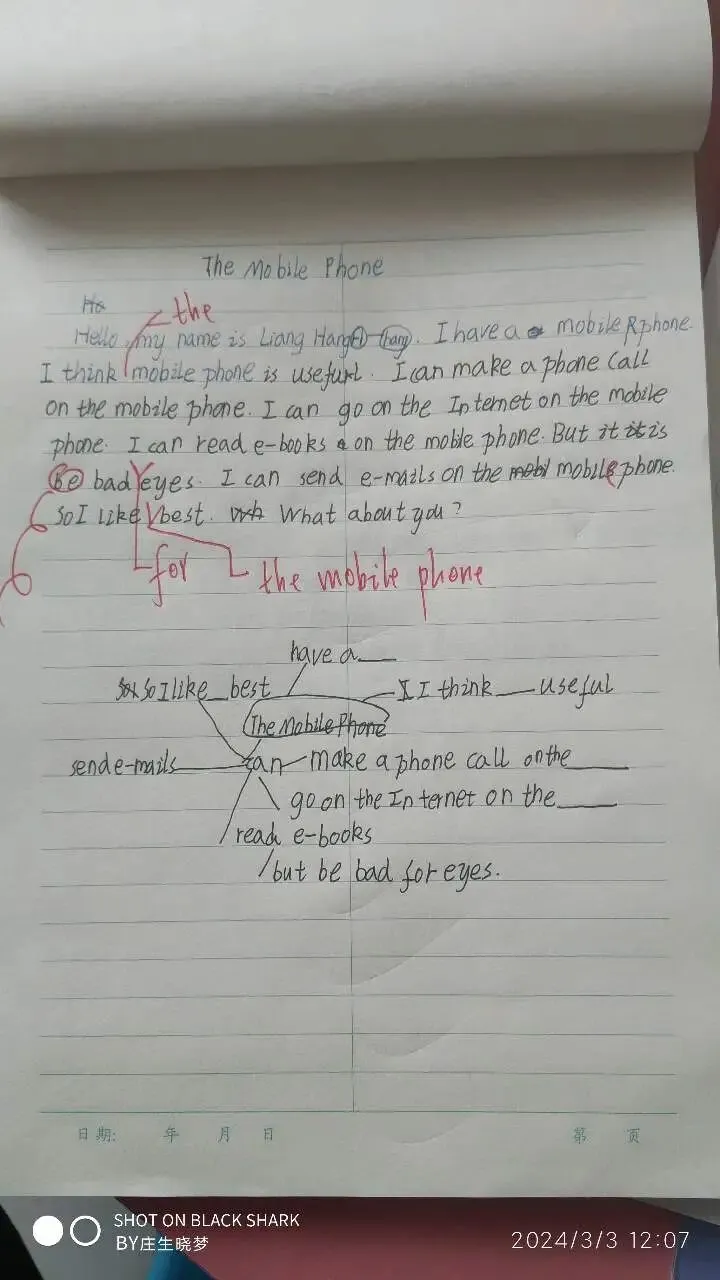 The Mobile Phone
Ha
the
Hello, my name is Liang Hang. I have a mobile phone.
I think mobile phone is useful. I can make a phone call
on the mobile phone. I can go on the Internet on the mobile
phone. I can read e-books on the mobile phone. But it is
Be bad eyes. I can send e-mails on the mobile phone.
So I like best. What about you?
for
the mobile phone
have a
So I like best
I think useful
The Mobile Phone
send e-mails
can
make a phone call on the
go on the Internet on the
read e-books
but be bad for eyes.
日期: 年 月 日 第 页
SHOT ON BLACK SHARK
BY庄生晓梦
2024/3/3 12:07